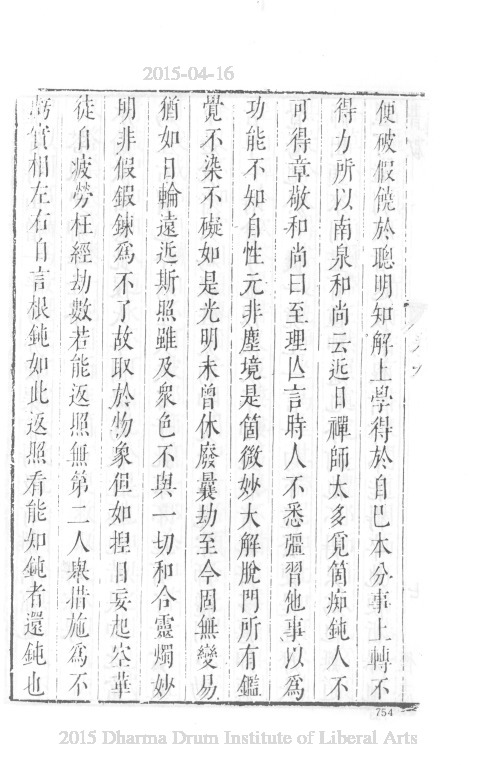 2015-04-16
便破假饒於聰明知解上學得於自巳本分事上轉不
得力所以南泉和尚云近日禪師太多覓箇痴鈍人不
可得章敬和尚曰至理亾言時人不悉彊習他事以爲
功能不知自性元非塵境是箇微妙大解脫門所有鑑
覺不染不礙如是光明未曾休廢曩劫至今固無變易
猶如日輪遠近斯照雖及衆色不與一切和合靈燭妙
明非假鍛鍊爲不了故取於物象但如揑目妄起空華
徒自疲勞枉經劫數若能返照無第二人舉措施爲不
虧實相左右自言根鈍如此返照看能知鈍者還鈍也
754
2015 Dharma Drum Institute of Liberal Arts